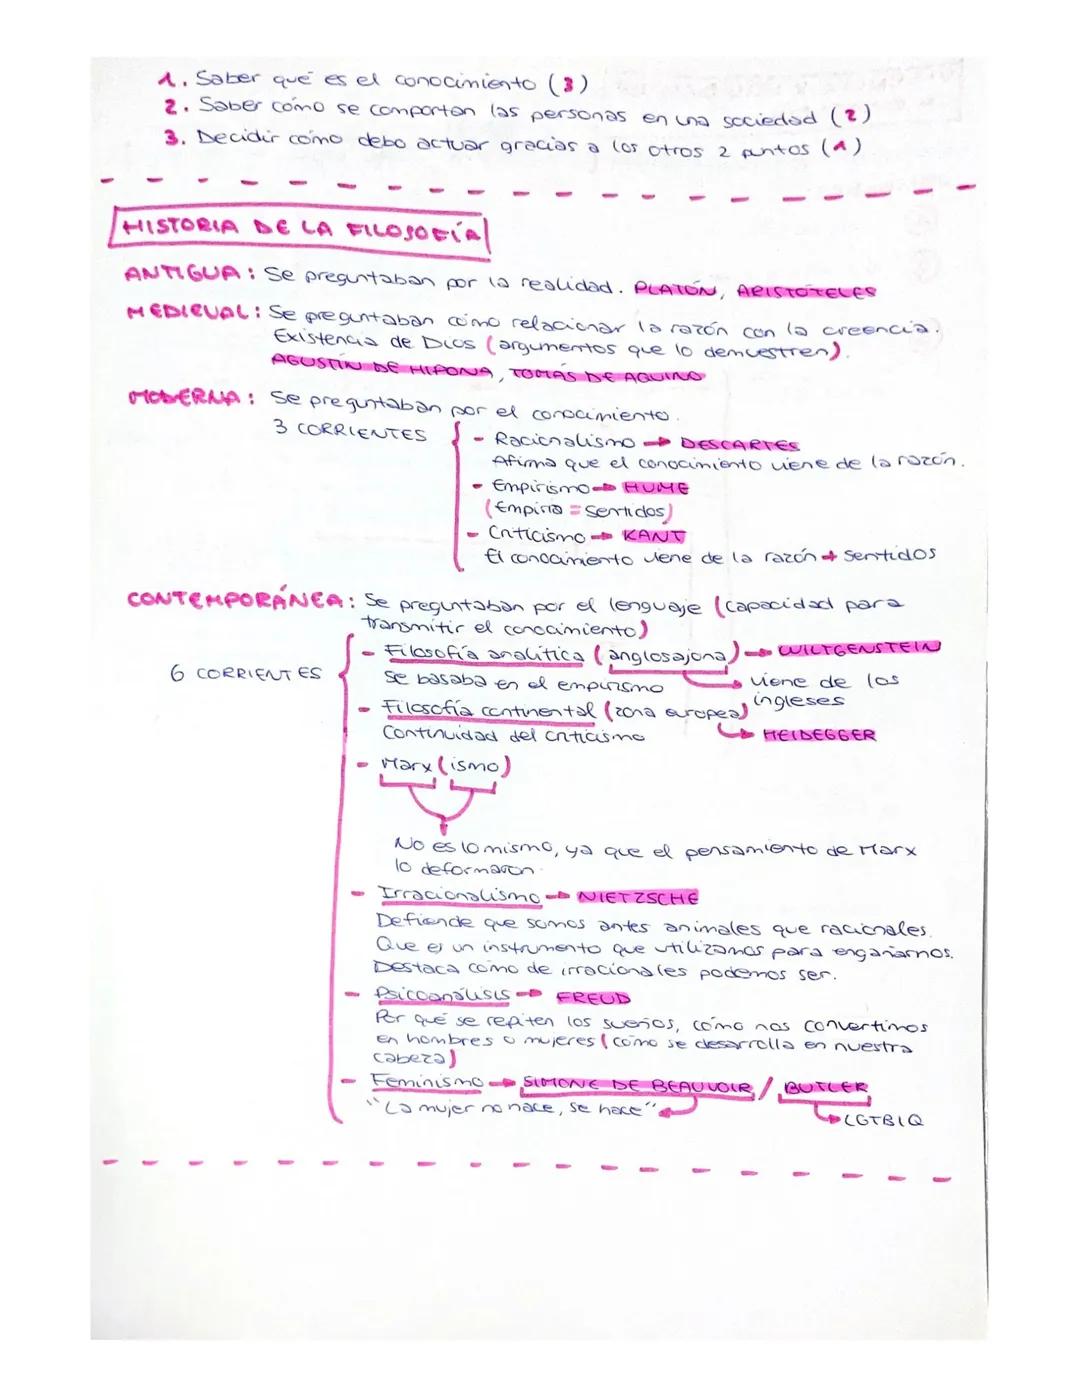 1. Saber qué es el conocimiento (3)
2. Saber cómo se comportan las personas en una sociedad (2)
3. Decidir cómo debo actuar gracias a los otros 2 puntos (1)
HISTORIA DE LA FILOSOFÍA
ANTIGUA: Se preguntaban por la realidad. PLATÓN, ARISTÓTELES
MEDIEVAL: Se preguntaban cómo relacionar la razón con la creencia.
Existencia de Dios (argumentos que lo demuestren).
AGUSTÍN DE HIPONA, TOMÁS DE AQUINO
MODERNA: Se preguntaban por el conocimiento.
3 CORRIENTES
- Racionalismo → DESCARTES
Afirma que el conocimiento viene de la razón.
- Empirismo → HUME
(Empiria = Sentidos)
- Criticismo → KANT
El conocimiento viene de la razón + sentidos
CONTEMPORÁNEA: Se preguntaban por el lenguaje (capacidad para
transmitir el conocimiento)
6 CORRIENTES
- Filosofía analítica (anglosajona) → WILTGENSTEIN
Se basaba en el empirismo → viene de los
ingleses
- Filosofía continental (zona europea)
Continuidad del criticismo → HEIDEGGER
- Marx(ismo)
No es lo mismo, ya que el pensamiento de Marx
lo deformaron.
- Irracionalismo → NIETZSCHE
Defiende que somos antes animales que racionales.
Que es un instrumento que utilizamos para engañarnos.
Destaca cómo de irracionales podemos ser.
- Psicoanálisis → FREUD
Por qué se repiten los sueños, cómo nos convertimos
en hombres o mujeres (cómo se desarrolla en nuestra
cabeza)
- Feminismo → SIMONE DE BEAUVOIR / BUTLER
"La mujer no nace, se hace" → LGTBIQ